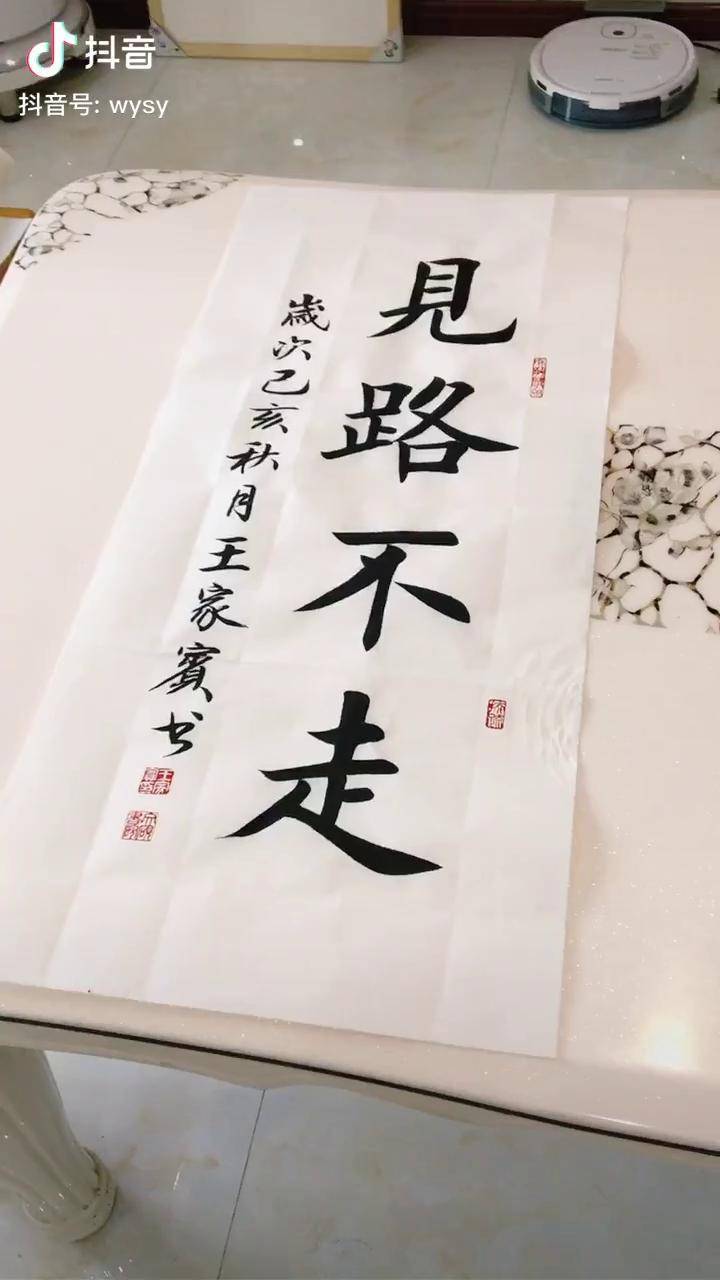 抖音
抖音号: wysy
見路不走
歲次己亥秋月王家賓书